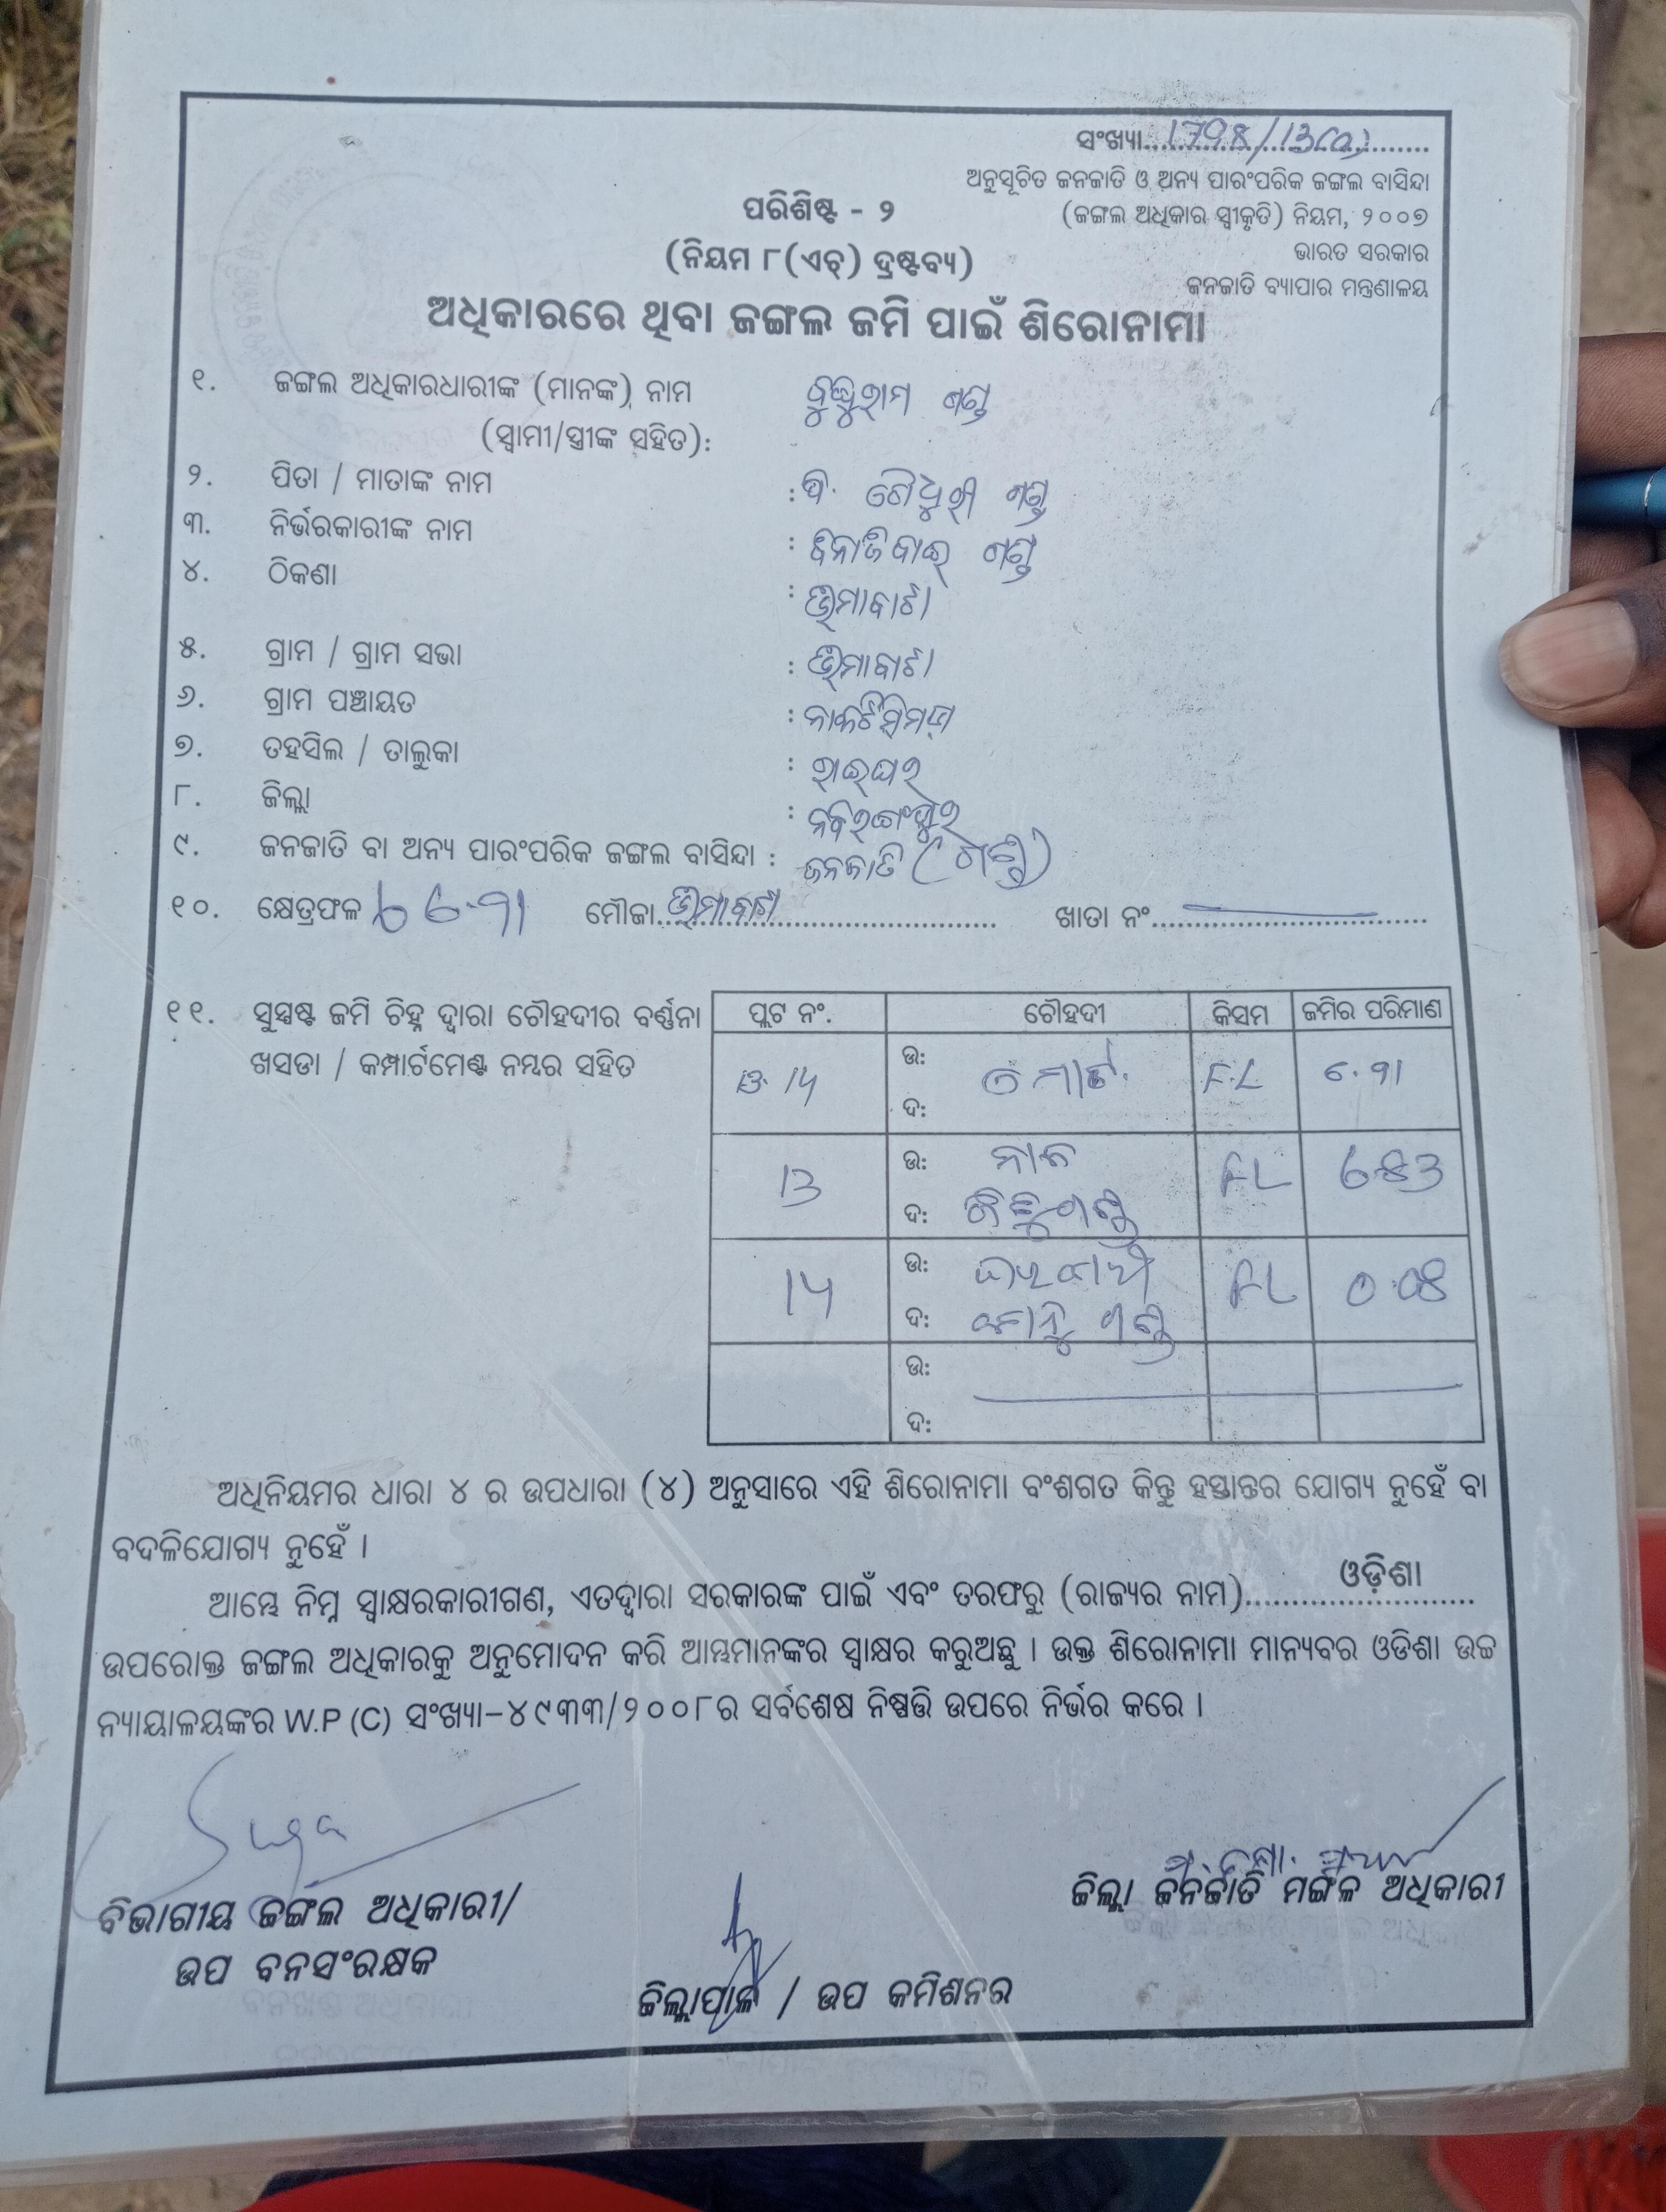 ସଂଖ୍ୟା..............................
ଅନୁସୂଚିତ ଜନଜାତି ଓ ଅନ୍ୟ ପାରଂପରିକ ଜଙ୍ଗଲ ବାସିନ୍ଦା
ପରିଶିଷ୍ଟ - ୨
(ଜଙ୍ଗଲ ଅଧିକାର ସ୍ୱୀକୃତି) ନିୟମ, ୨୦୦୭
(ନିୟମ ୮(ଏଚ୍) ଦ୍ରଷ୍ଟବ୍ୟ)
ଭାରତ ସରକାର
ଜନଜାତି ବ୍ୟାପାର ମନ୍ତ୍ରଣାଳୟ
ଅଧିକାରରେ ଥିବା ଜଙ୍ଗଲ ଜମି ପାଇଁ ଶିରୋନାମା
୧. ଜଙ୍ଗଲ ଅଧିକାରଧାରୀଙ୍କ (ମାନଙ୍କ) ନାମ ବୁଦ୍ଧୁରାମ ଗଣ୍ଡ
(ସ୍ୱାମୀ/ସ୍ତ୍ରୀଙ୍କ ସହିତ):
୨. ପିତା / ମାତାଙ୍କ ନାମ : ଗଣ୍ଡ
୩. ନିର୍ଭରକାରୀଙ୍କ ନାମ : ଗଣ୍ଡ
୪. ଠିକଣା :
୫. ଗ୍ରାମ / ଗ୍ରାମ ସଭା :
୬. ଗ୍ରାମ ପଞ୍ଚାୟତ :
୭. ତହସିଲ / ତାଲୁକା : ରାଇଘର
୮. ଜିଲ୍ଲା : ନବରଙ୍ଗପୁର
୯. ଜନଜାତି ବା ଅନ୍ୟ ପାରଂପରିକ ଜଙ୍ଗଲ ବାସିନ୍ଦା : ଜନଜାତି (ଗଣ୍ଡ)
୧୦. କ୍ଷେତ୍ରଫଳ ମୌଜା.............................. ଖାତା ନଂ..............................
୧୧. ସୁସ୍ପଷ୍ଟ ଜମି ଚିହ୍ନ ଦ୍ୱାରା ଚୌହଦୀର ବର୍ଣ୍ଣନା
ଖସଡା / କମ୍ପାର୍ଟମେଣ୍ଟ ନମ୍ବର ସହିତ
ପ୍ଲଟ ନଂ. ଚୌହଦୀ କିସମ ଜମିର ପରିମାଣ
ଉ: F.L
ଦ:
13 ଉ: FL
ଦ: ଗଣ୍ଡ
ଉ: FL
ଦ: ଗଣ୍ଡ
ଉ:
ଦ:
ଅଧିନିୟମର ଧାରା ୪ ର ଉପଧାରା (୪) ଅନୁସାରେ ଏହି ଶିରୋନାମା ବଂଶଗତ କିନ୍ତୁ ହସ୍ତାନ୍ତର ଯୋଗ୍ୟ ନୁହେଁ ବା
ବଦଳିଯୋଗ୍ୟ ନୁହେଁ ।
ଆମ୍ଭେ ନିମ୍ନ ସ୍ୱାକ୍ଷରକାରୀଗଣ, ଏତଦ୍ଦ୍ୱାରା ସରକାରଙ୍କ ପାଇଁ ଏବଂ ତରଫରୁ (ରାଜ୍ୟର ନାମ)......ଓଡ଼ିଶା......
ଉପରୋକ୍ତ ଜଙ୍ଗଲ ଅଧିକାରକୁ ଅନୁମୋଦନ କରି ଆମ୍ଭମାନଙ୍କର ସ୍ୱାକ୍ଷର କରୁଅଛୁ । ଉକ୍ତ ଶିରୋନାମା ମାନ୍ୟବର ଓଡିଶା ଉଚ୍ଚ
ନ୍ୟାୟାଳୟଙ୍କର W.P (C) ସଂଖ୍ୟା-୪୯୩୩/୨୦୦୮ର ସର୍ବଶେଷ ନିଷ୍ପତ୍ତି ଉପରେ ନିର୍ଭର କରେ ।
ବିଭାଗୀୟ ଜଙ୍ଗଲ ଅଧିକାରୀ/
ଉପ ବନସଂରକ୍ଷକ
ଜିଲ୍ଲାପାଳ / ଉପ କମିଶନର
ଜିଲ୍ଲା ଜନଜାତି ମଙ୍ଗଳ ଅଧିକାରୀ